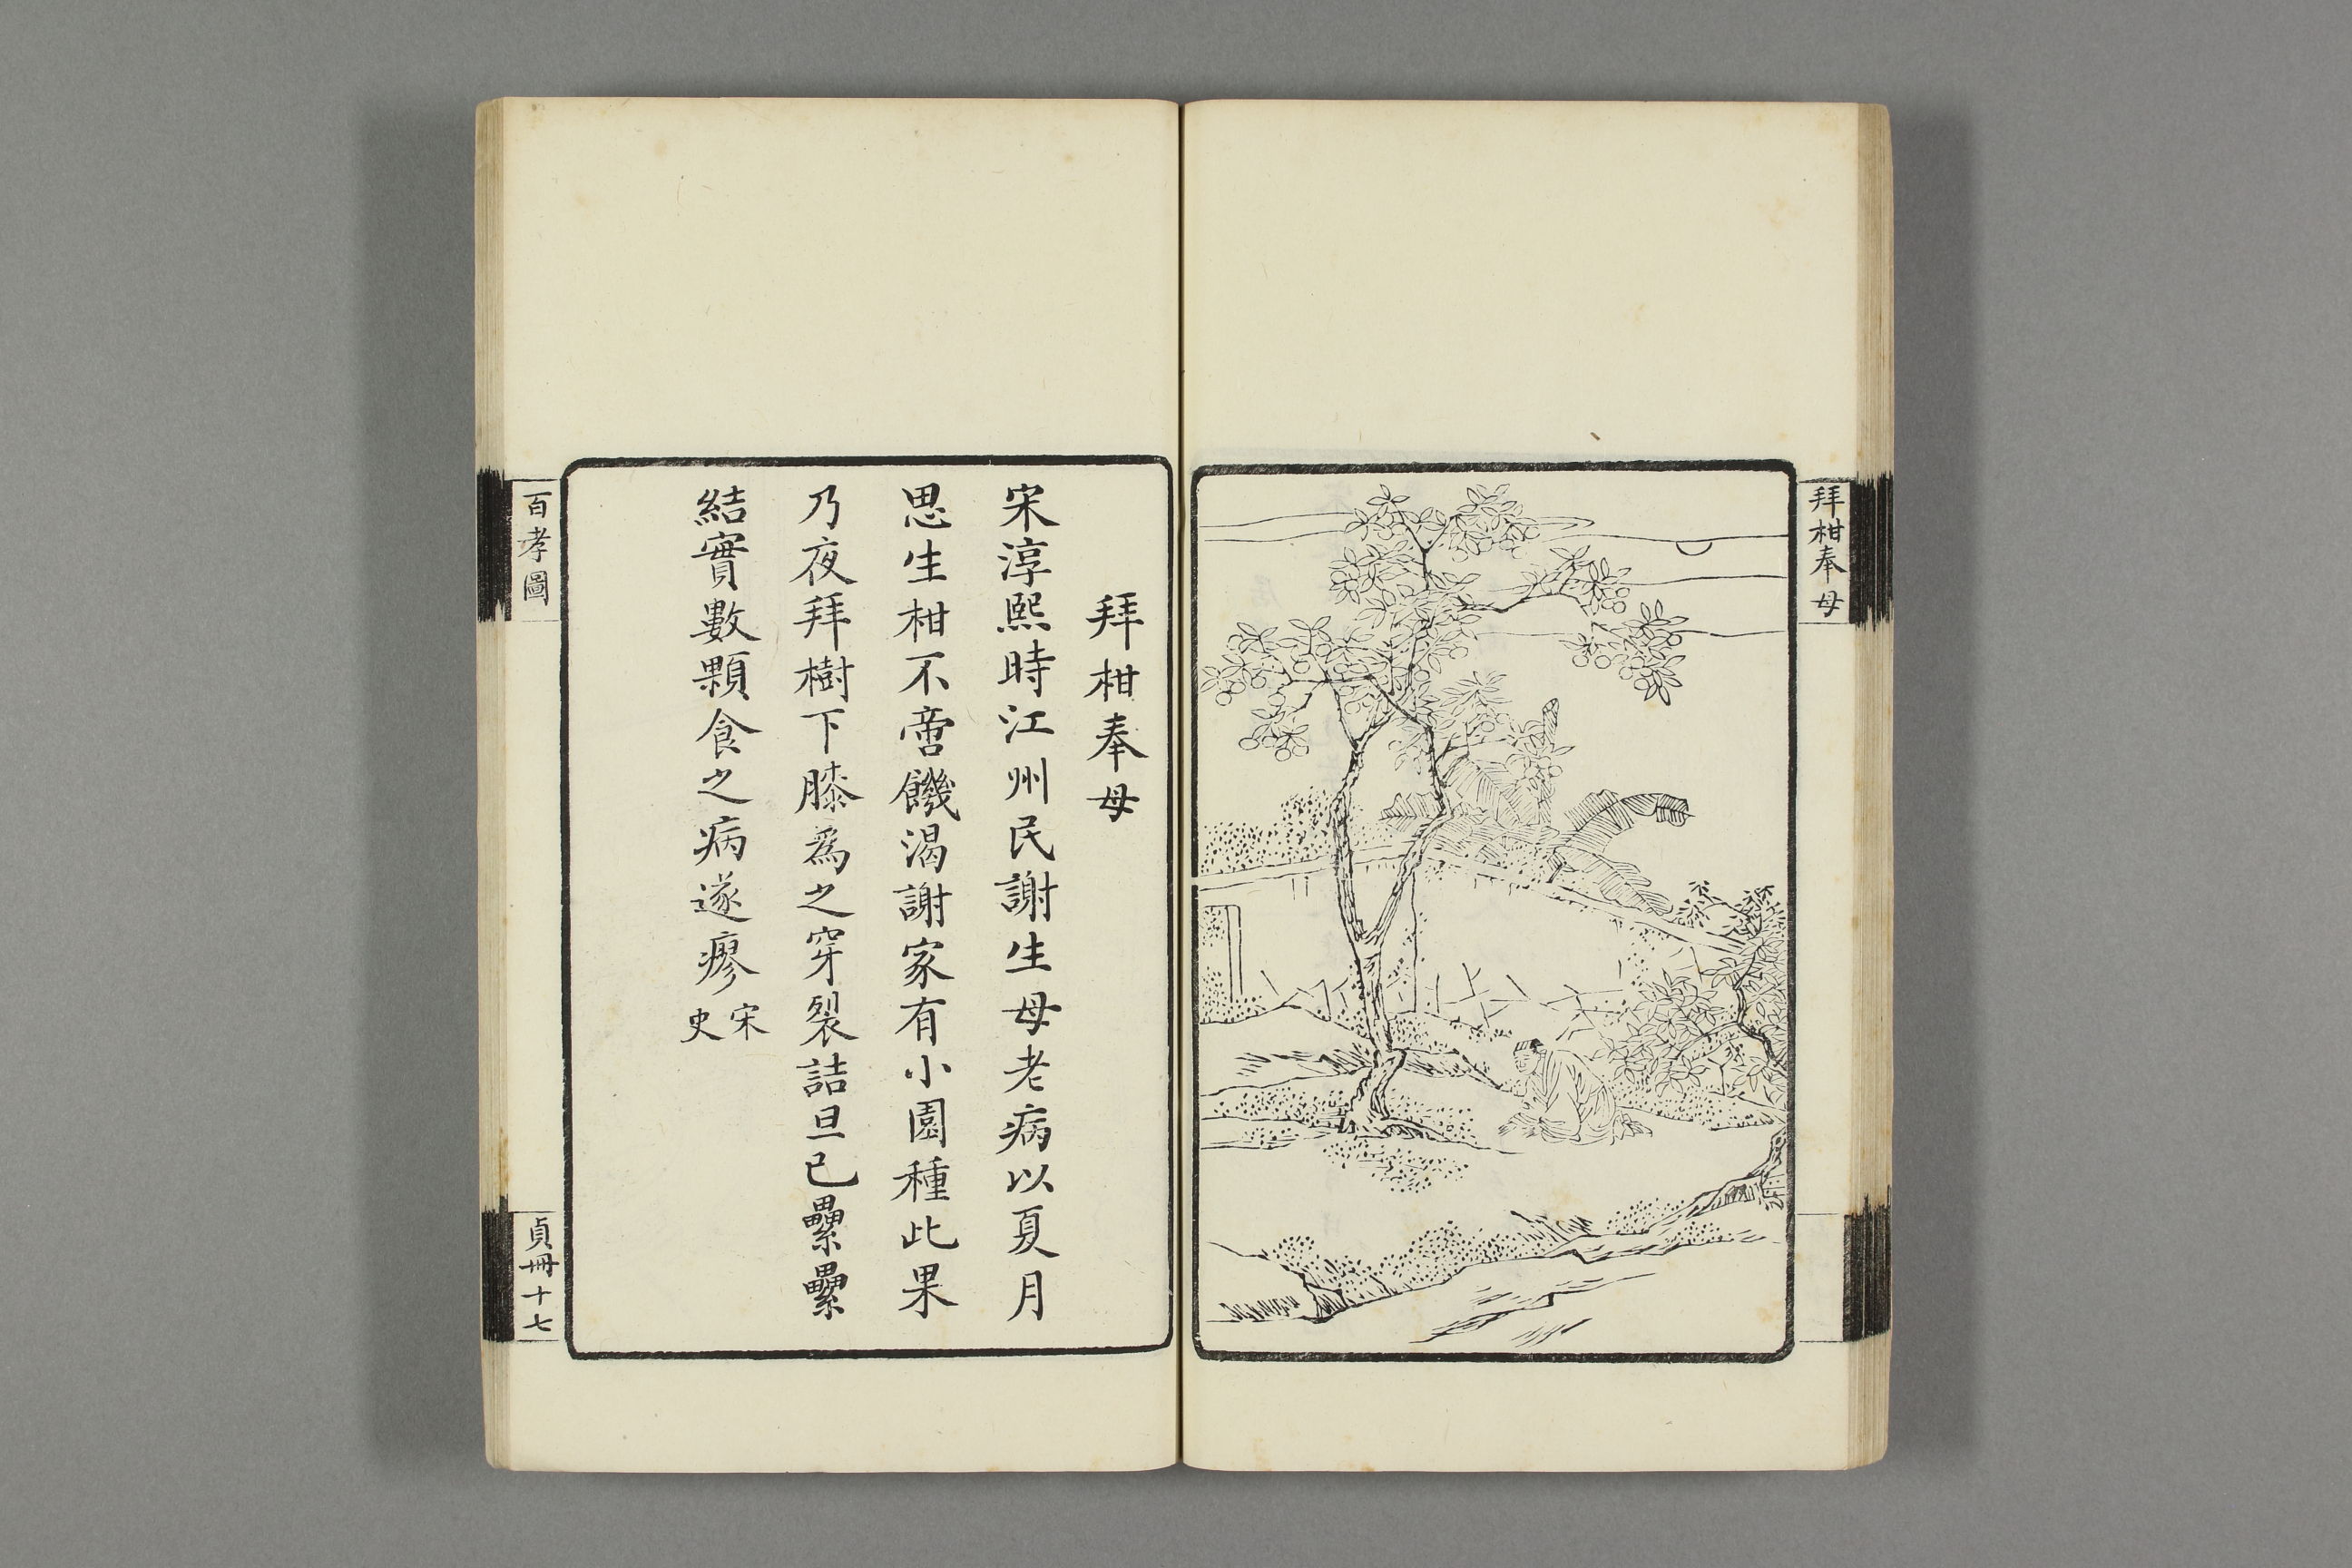 拜柑奉母
拜柑奉母
宋淳熙時江州民謝生母老病以夏月
思生柑不啻饑渴謝家有小園種此果
乃夜拜樹下膝為之穿裂詰旦已纍纍
結實數顆食之病遂瘳宋史
百孝圖
貞冊十七